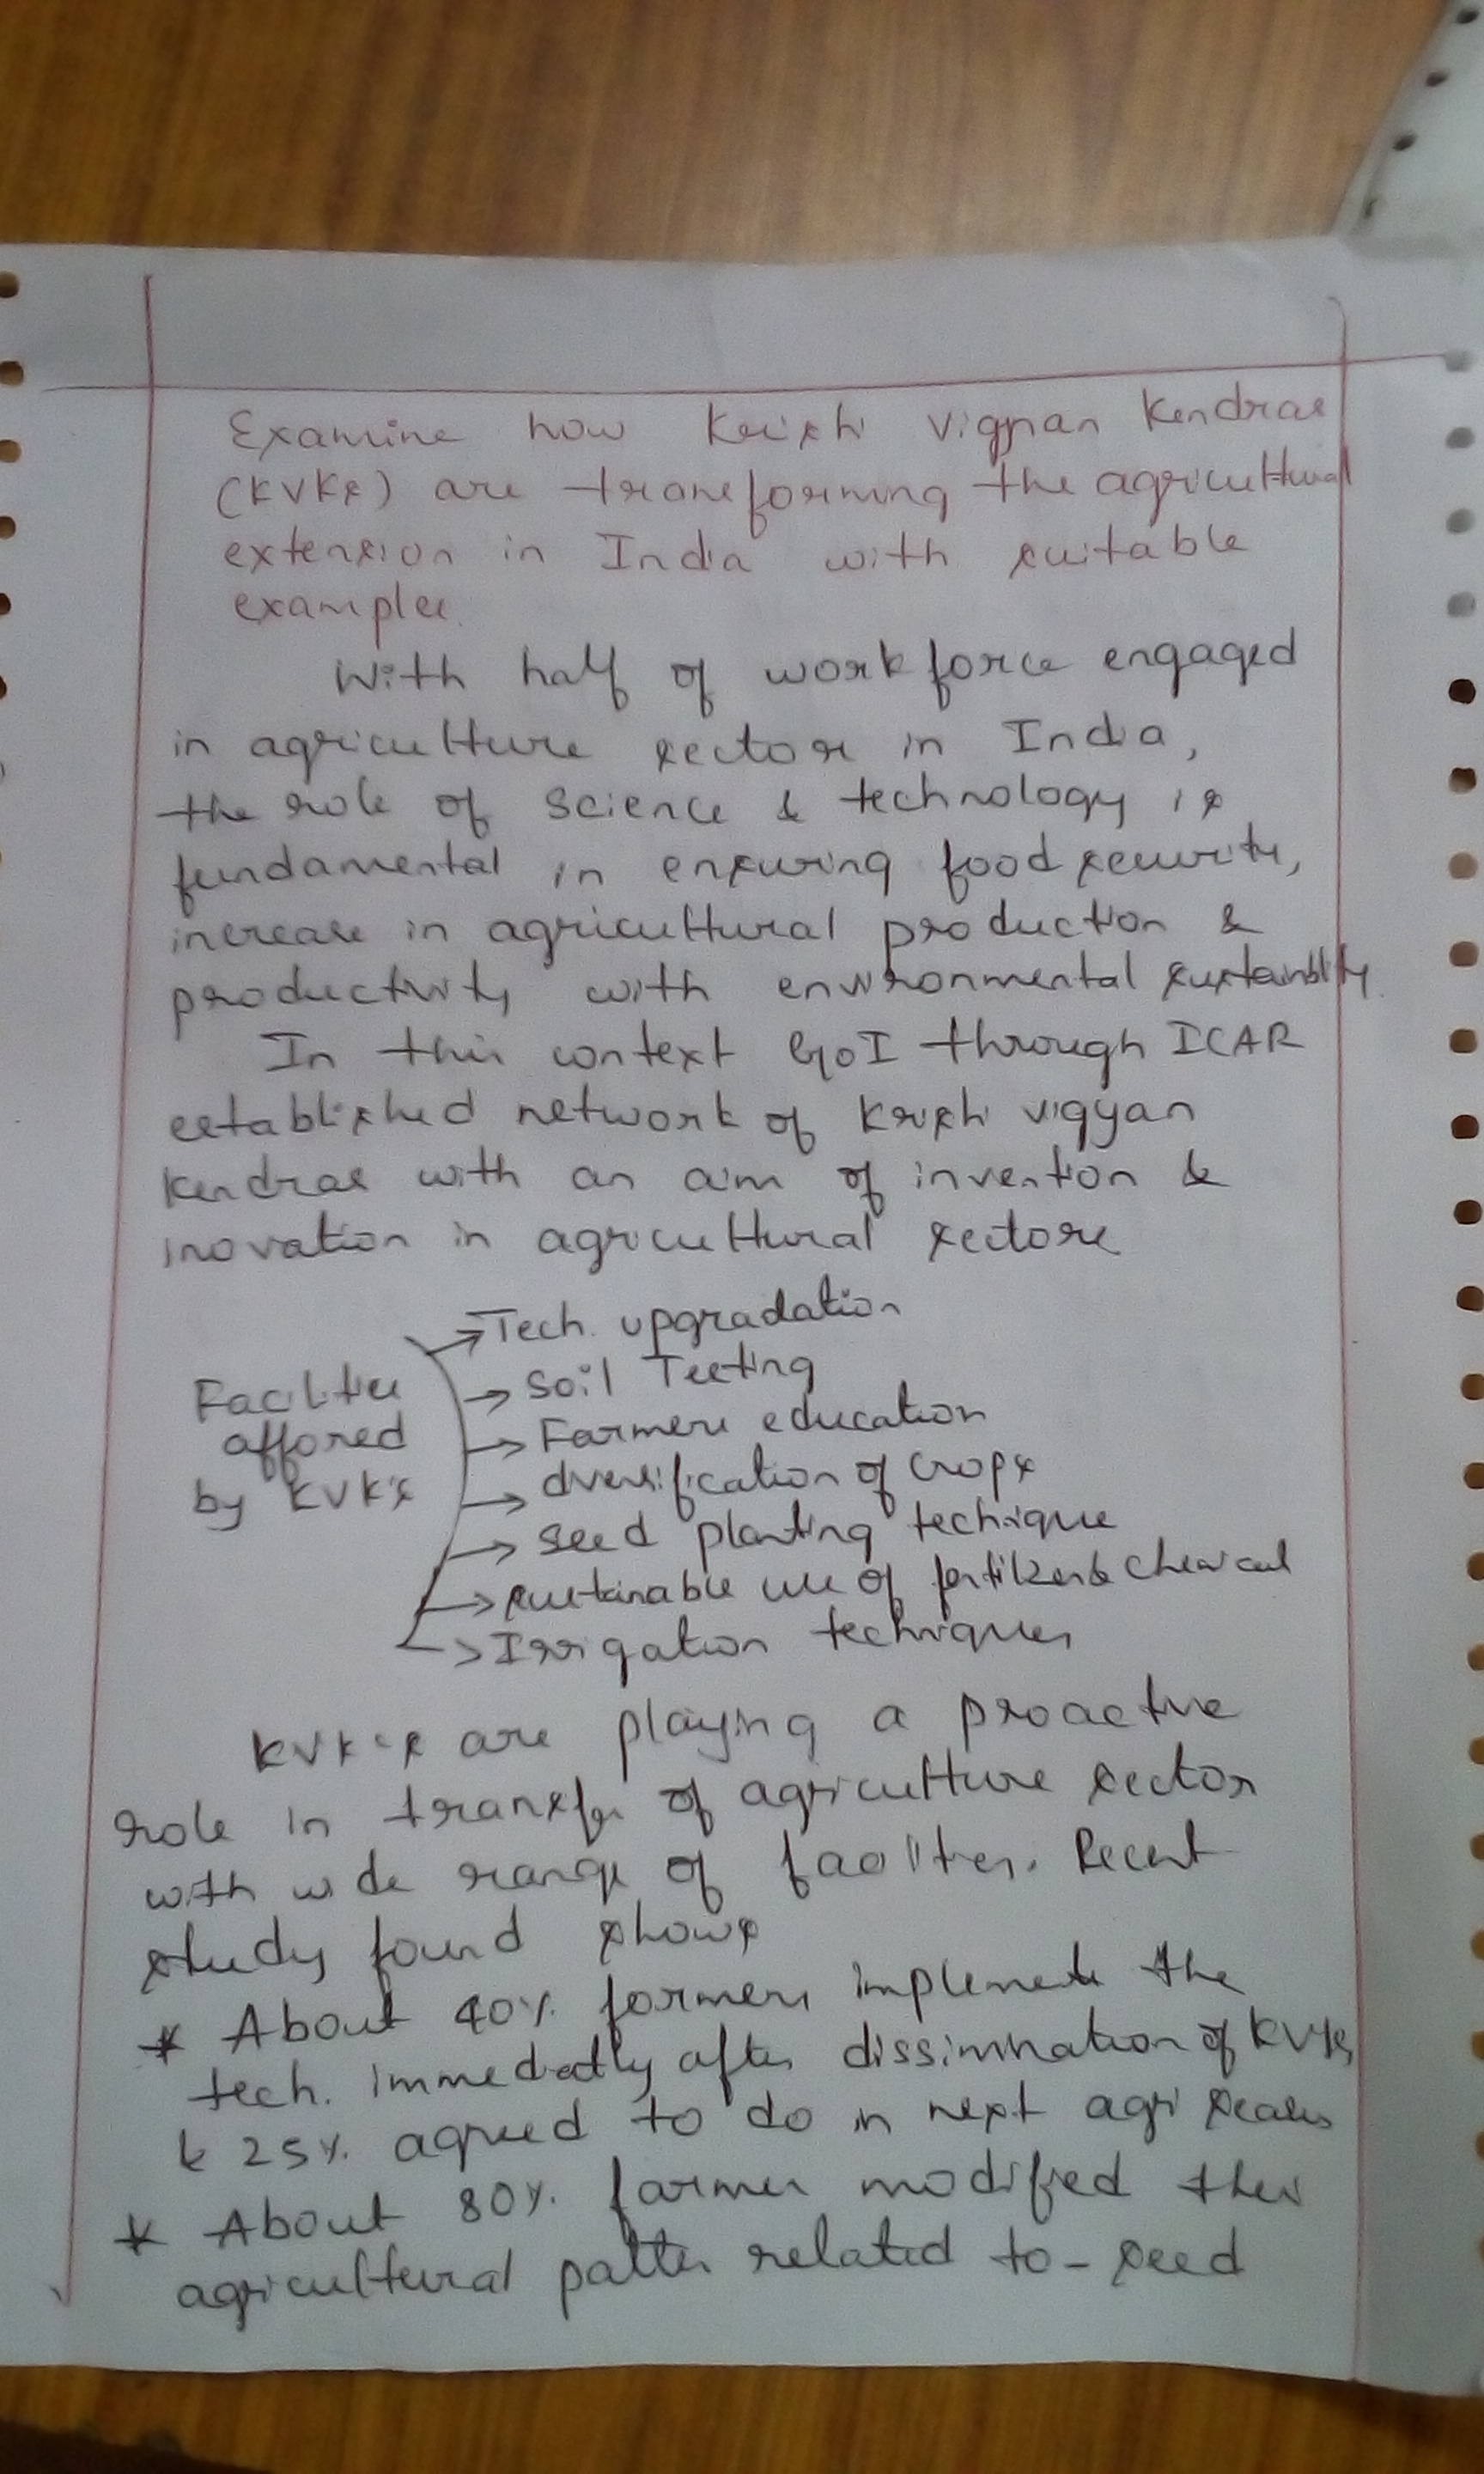 Examine how Krishi Vigyan Kendras
(KVKs) are transforming the agricultural
extension in India with suitable
examples.
With half of workforce engaged
in agriculture sector in India,
the role of science & technology is
fundamental in ensuring food security,
increase in agricultural production &
productivity with environmental sustainblity.
In this context GoI through ICAR
established network of Krishi vigyan
kendras with an aim of invention &
inovation in agricultural sectors
Facilities
affored
by KVK's
→ Tech. upgradation
→ Soil Testing
→ Farmers education
→ diversification of crops
→ seed planting technique
→ sustainable use of fertilizer & chemical
→ Irrigation techniques
KVK's are playing a proactive
role in transfer of agriculture sector
with wide range of facilities. Recent
study found shows
* About 40% farmers implements the
tech. immediatly after dissimination of KVKs,
& 25% agreed to do in next agri
* About 80% farmer modified their
agricultural patter related to - seed